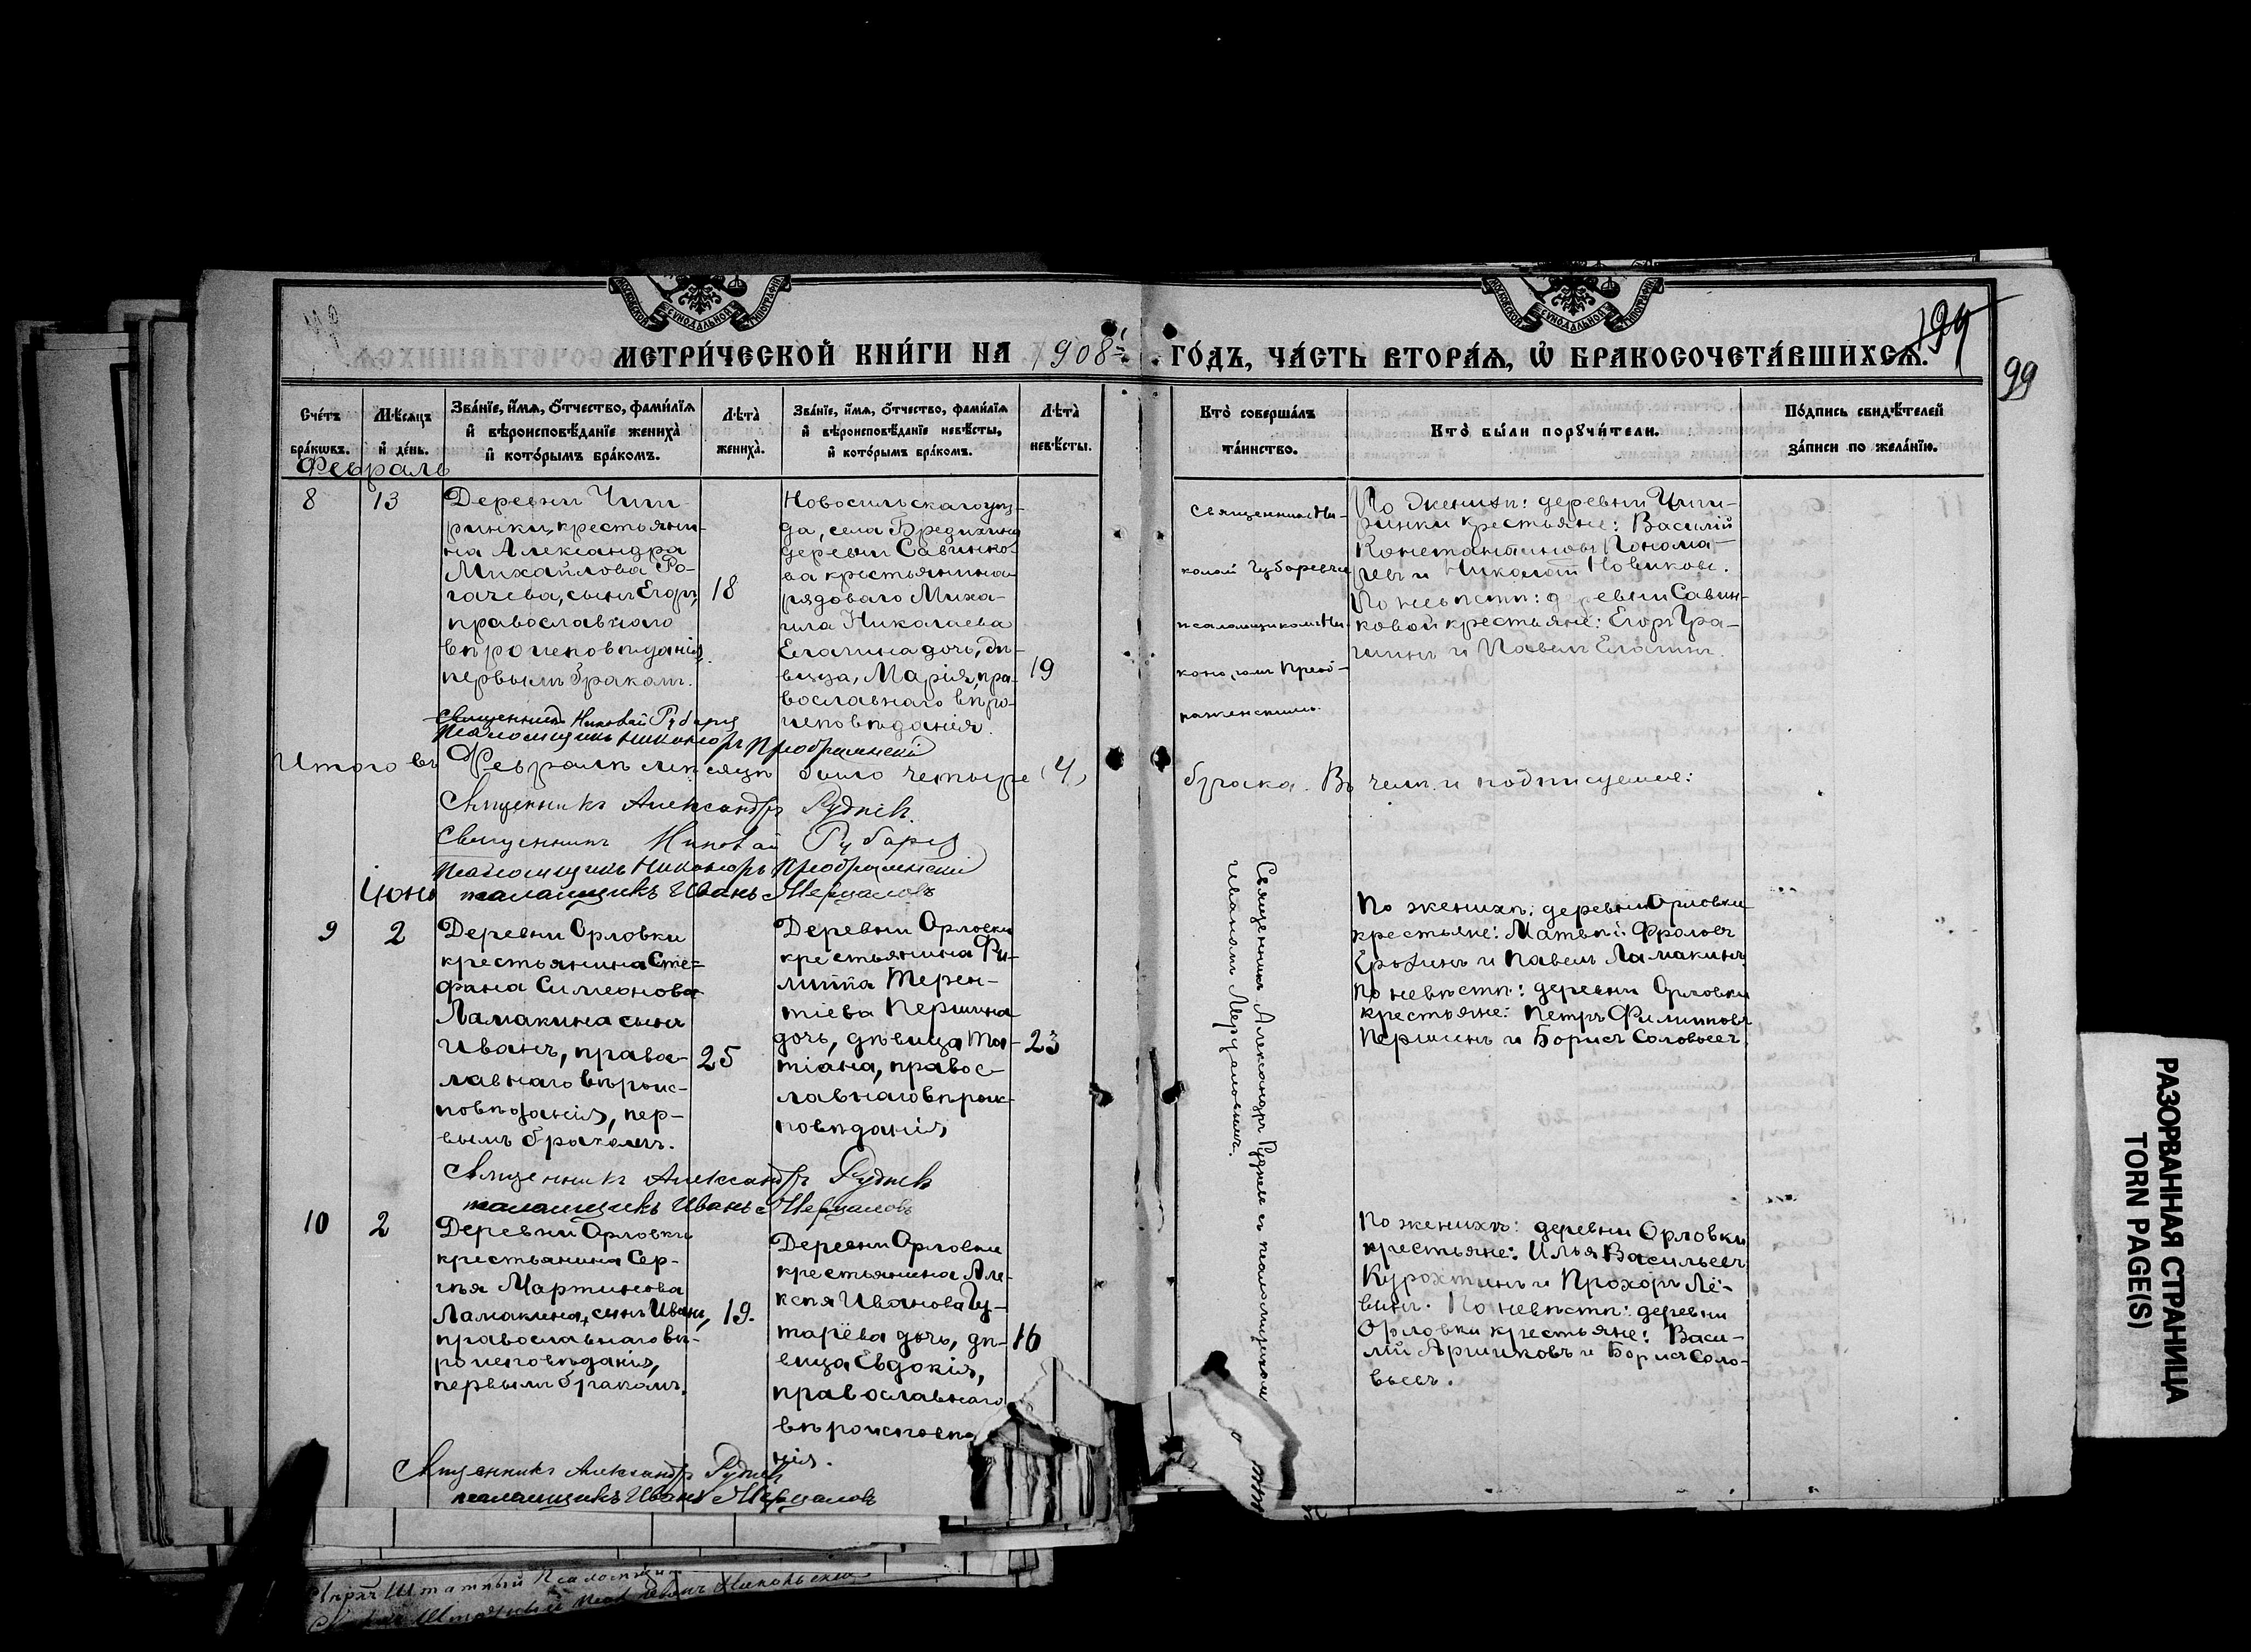 МЕТРИ́ЧЕСКОЙ КНИ́ГИ НА 1908й ГО́ДЪ, ЧА́СТЬ ВТОРА́Я, Ѡ҆ БРАКОСОЧЕТА́ВШИХСѦ.
199
99
МОСКОВСКОЙ СѴНОДАЛЬНОЙ ТИПОГРАФІИ
МОСКОВСКОЙ СѴНОДАЛЬНОЙ ТИПОГРАФІИ
Сче́тъ бра́кѡвъ.
Мѣ́сяцъ и҆ де́нь.
Зва́нїе, и҆́мѧ, ѻ҆́тчество, фами́лїѧ и҆ вѣроисповѣ́данїе жениха̀ и҆ кото́рымъ бра́комъ.
Лѣта̀ жениха̀.
Зва́нїе, и҆́мѧ, ѻ҆́тчество, фами́лїѧ и҆ вѣроисповѣ́данїе невѣ́сты, и҆ кото́рымъ бра́комъ.
Лѣта̀ невѣ́сты.
Кто̀ соверша́лъ та́инство.
Кто̀ бы́ли порꙋчи́тели.
По́дпись свидѣ́телей за́писи по жела́нїю.
Февраль
8
13
Деревни Чип-
ринки, крестьяни-
на Александра
Михайлова Ро-
гачева, сынъ Егоръ,
православнаго
вѣроисповѣданія,
первымъ бракомъ.
18
Новосильскаго уѣз-
да, села Бредихина
деревни Савинко-
ва крестьянина
рядоваго Миха-
ила Николаева
Елагина дочь, дѣ-
вица, Марія, пра-
вославнаго вѣро-
исповѣданія.
19
Священникъ Ни-
колай Губаревъ съ
псаломщикомъ Ни-
каноромъ Преоб-
раженскимъ.
По женихѣ: деревни Чип-
ринки крестьяне: Василій
Константиновъ Понома-
ревъ и Николай Новиковъ.
По невѣстѣ: деревни Савин-
ковой крестьяне: Егоръ Гра-
шинъ и Павелъ Елагинъ.
Священникъ Николай Губаревъ
Псаломщикъ Никаноръ Преображенскій
Итого въ Февралѣ мѣсяцѣ было четыре (4) брака. Въ чемъ и подписуемся:
Священникъ Александръ Рудневъ.
Священникъ Николай Губаревъ
Псаломщикъ Никаноръ Преображенскій
псаломщикъ Иванъ Мерцаловъ
Іюнь
9
2
Деревни Орловки
крестьянина Сте-
фана Симеонова
Ламакина сынъ
Иванъ, правос-
лавнаго вѣроис-
повѣданія, пер-
вымъ бракомъ.
25
Деревни Орловки
крестьянина Фи-
липпа Терен-
тіева Першина
дочь, дѣвица Та-
тіана, правос-
лавнаго вѣроис-
повѣданія
23
Священникъ Александръ Рудневъ съ псаломщикомъ
Иваномъ Мерцаловымъ.
По женихѣ: деревни Орловки
крестьяне: Матвѣй Фроловъ
Ерохинъ и Павелъ Ламакинъ.
По невѣстѣ: деревни Орловки
крестьяне: Петръ Филипповъ
Першинъ и Борисъ Соловьевъ.
Священникъ Александръ Рудневъ
псаломщикъ Иванъ Мерцаловъ
10
2
Деревни Орловки
крестьянина Сер-
гѣя Мартинова
Ламакина, сынъ Иванъ,
православнаго вѣ-
роисповѣданія,
первымъ бракомъ.
19.
Деревни Орловки
крестьянина Але-
ксѣя Иванова Гу-
тарёва дочь, дѣ-
вица Евдокія,
православнаго
вѣроисповѣ
нія.
16
По женихѣ: деревни Орловки
крестьяне: Илья Васильевъ
Курохтинъ и Прохоръ Лё-
винъ. По невѣстѣ: деревни
Орловки крестьяне: Васи-
лій Аршиковъ и Борисъ Соло-
вьевъ.
Священникъ Александръ Рудневъ
псаломщикъ Иванъ Мерцаловъ
РАЗОРВАННАЯ СТРАНИЦА
TORN PAGE(S)
Штатный Псаломщикъ